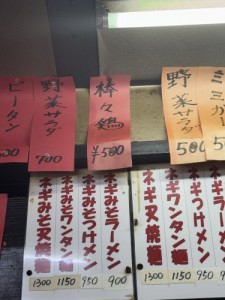 ミミガー
5
野菜サラダ
500
棒々鶏
¥500
野菜サラダ
700
ピータン
500
ネギラーメン
900
ネギつけメン
950
ネギワンタン麺
1150
ネギ叉焼麺
1300
ネギみそラーメン
900
ネギみそつけメン
950
ネギみそワンタン麺
1150
ネギみそ叉焼麺
1300